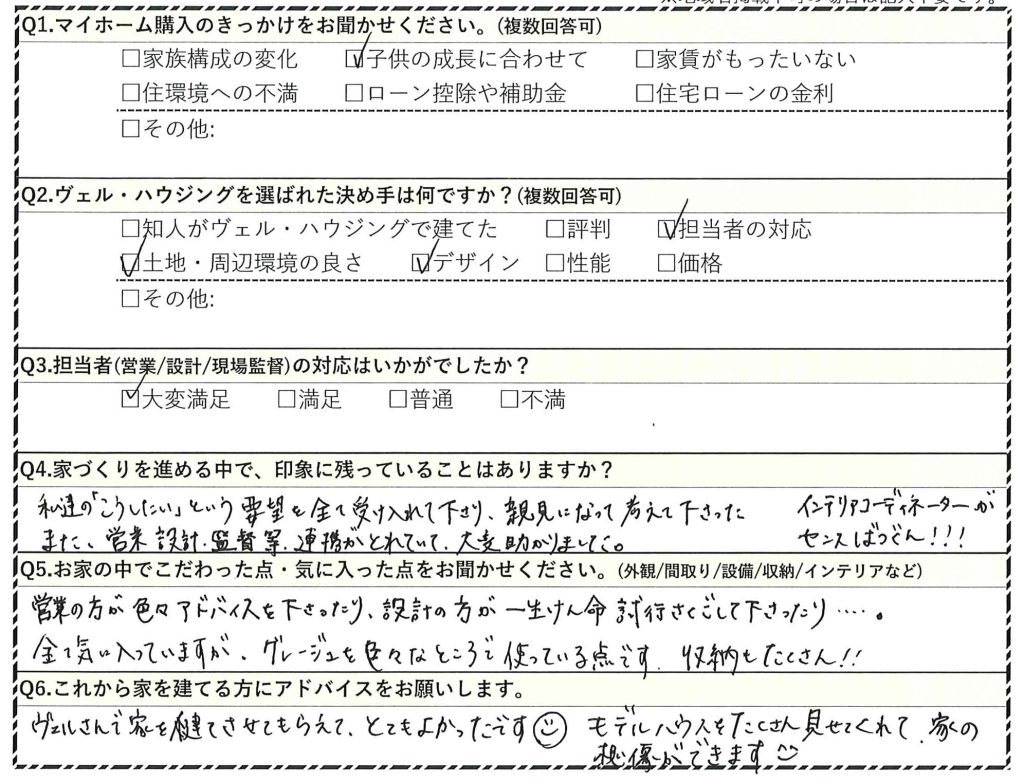 Q1.マイホーム購入のきっかけをお聞かせください。(複数回答可)
□家族構成の変化 ☑子供の成長に合わせて □家賃がもったいない
□住環境への不満 □ローン控除や補助金 □住宅ローンの金利
□その他:
Q2.ヴェル・ハウジングを選ばれた決め手は何ですか？(複数回答可)
□知人がヴェル・ハウジングで建てた □評判 ☑担当者の対応
☑土地・周辺環境の良さ ☑デザイン □性能 □価格
□その他:
Q3.担当者(営業/設計/現場監督)の対応はいかがでしたか？
☑大変満足 □満足 □普通 □不満
Q4.家づくりを進める中で、印象に残っていることはありますか？
私達の「こうしたい」という要望を全て受け入れて下さり、親見になって考えて下さった
また、営業・設計・監督等、連携がとれていて、大変助かりました。
インテリアコーディネーターが
センスばつぐん!!!
Q5.お家の中でこだわった点・気に入った点をお聞かせください。(外観/間取り/設備/収納/インテリアなど)
営業の方が色々アドバイスを下さったり、設計の方が一生けん命試行さくごして下さったり‥‥。
全て気に入っていますが、グレージュを色々なところで使っている点です。収納もたくさん!!
Q6.これから家を建てる方にアドバイスをお願いします。
ヴェルさんで家を建てさせてもらえて、とてもよかったです☺ モデルハウスをたくさん見せてくれて、家の
想像ができます☺